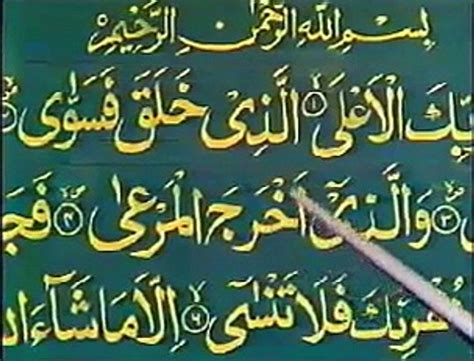 بِسْمِ اللهِ الرَّحْمٰنِ الرَّحِيْمِ
بِّكَ الْاَعْلَى ١ الَّذِىْ خَلَقَ فَسَوّٰى
٣ وَالَّذِىْٓ اَخْرَجَ الْمَرْعٰى ٤ فَجَ
قْرِئُكَ فَلَا تَنْسٰٓى ٦ اِلَّا مَا شَآءَ ال